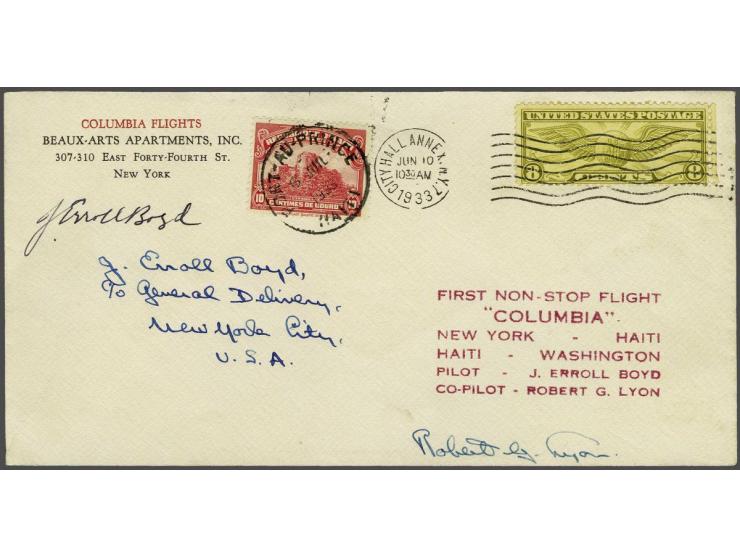 COLUMBIA FLIGHTS
BEAUX-ARTS APARTMENTS, INC.
307-310 EAST FORTY-FOURTH ST.
NEW YORK
J Erroll Boyd
PORT-AU-PRINCE
HAITI
10
CENTIMES DE GOURDE
CITY HALL ANNEX. N.Y.
JUN 10
10 30 AM
1933
7
UNITED STATES POSTAGE
8 CENTS 8
J. Erroll Boyd,
c/o General Delivery,
New York City,
U.S.A.
FIRST NON-STOP FLIGHT
"COLUMBIA".
NEW YORK - HAITI
HAITI - WASHINGTON
PILOT - J. ERROLL BOYD
CO-PILOT - ROBERT G. LYON
Robert G. Lyon.